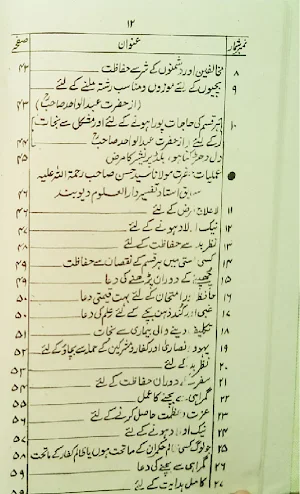 ۱۲
نمبر شمار عنوان صفحہ
۸ مخالفین اور دشمنوں کے شر سے حفاظت ۴۲
۹ بچیوں کے لئے موزوں و مناسب رشتہ ملنے کے لئے
(از حضرت عبدالواحد صاحبؒ) ۴۳
۱۰ ہر قسم کی حاجات پورا ہونے کے لئے اور مشکل سے نجات
کے لئے (از حضرت عبدالواحد صاحبؒ) ۴۴
دل دھڑکنا ہو، بلڈ پریشر کا مرض ۴۵
● عملیات حضرت مولانا سید حسن صاحب رحمۃ اللہ علیہ
سابق استاذ تفسیر دارالعلوم دیوبند ۴۶
۱۱ لاعلاج مرض کے لئے ۴۶
۱۲ نیک اولاد ہونے کے لئے ۴۷
۱۳ نظر بد سے حفاظت کے لئے ۴۸
۱۴ کسی بستی میں ہر قسم کے نقصان سے حفاظت ۴۹
۱۵ کے دوران پڑھنے کی دعا ۵۰
۱۶ حافظہ اور امتحان کے لئے بہت قیمتی دعا ۵۰
۱۷ غبی اور کند ذہن بچے کے لئے علم کی دعا ۵۱
۱۸ تکلیف دینے والی بیماری سے نجات ۵۱
۱۹ یہود و نصاریٰ اور کفار و مشرکین کے حملہ سے بچاؤ کے لئے ۵۲
۲۰ نظر بد کے لئے ۵۳
۲۱ سفر کے دوران حفاظت کے لئے ۵۴
۲۲ گمراہی سے بچنے کا عمل
۲۳ عزت و عظمت حاصل کرنے کے لئے ۵۶
۲۴ نیک اولاد ہونے کے لئے ۵۷
۲۵ جو لوگ کسی ظالم حکمران کے ماتحت ہوں یا ظالم کفار کے ماتحت ۵۸
۲۶ گمراہی سے بچنے کی دعا
۲۷ کامل ہدایت کے لئے ۵۹